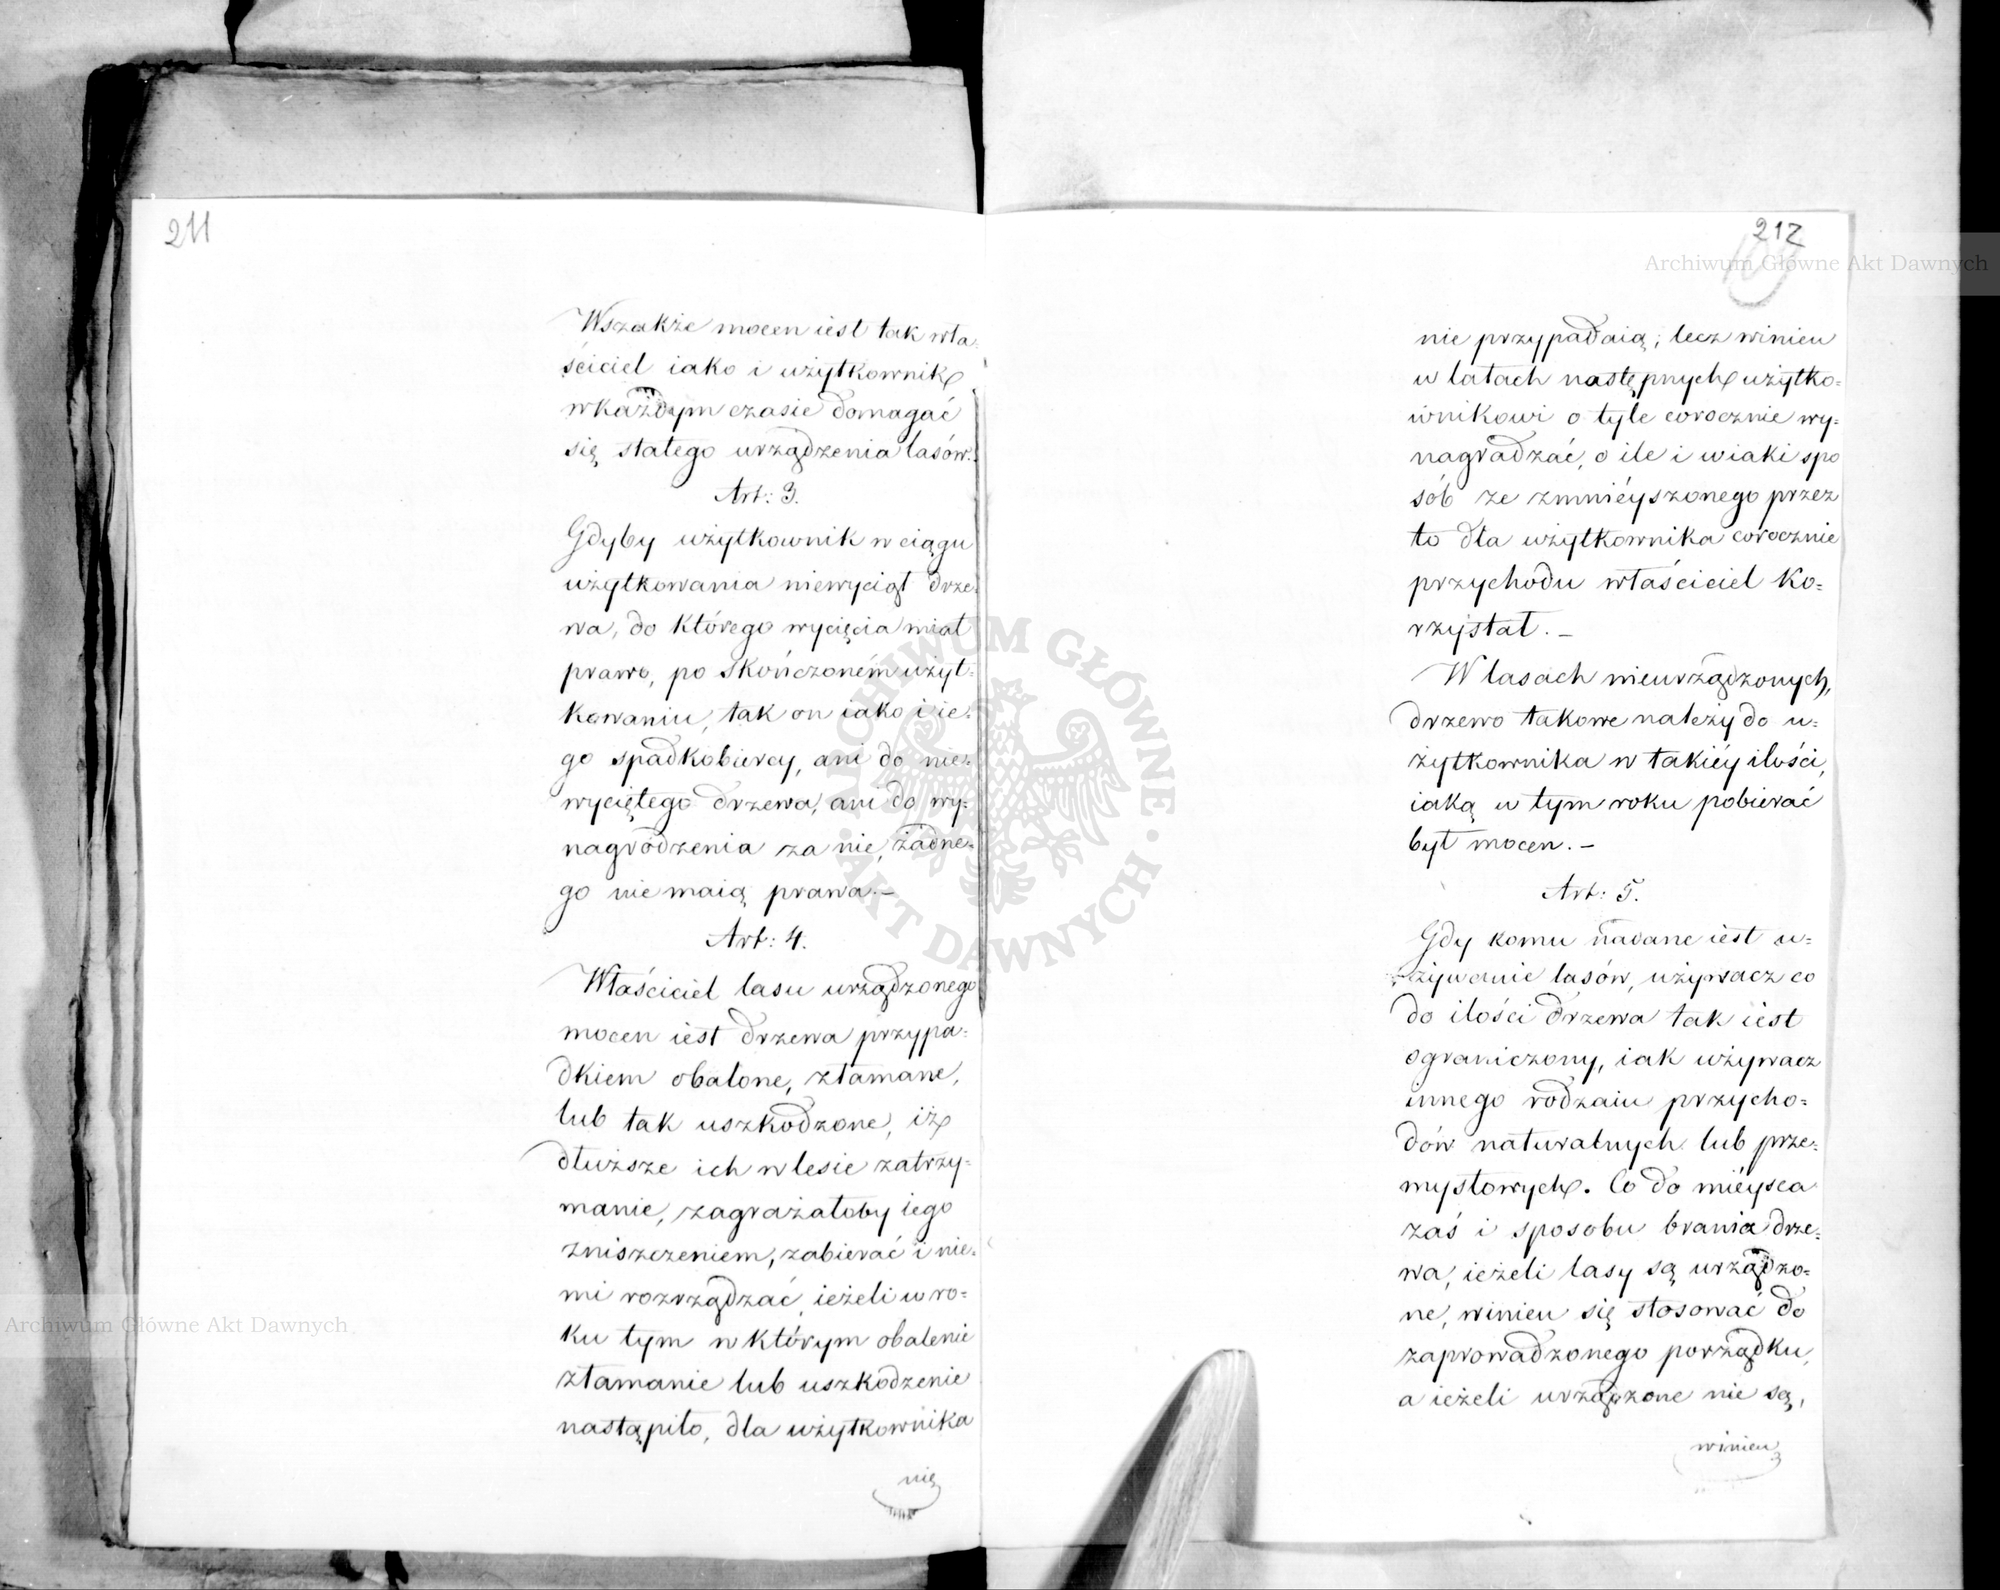 211
Wszakże mocen iest tak wła-
ściciel iako i użytkownik
w każdym czasie domagać
się stałego urządzenia lasów.
Art: 3.
Gdyby użytkownik w ciągu
użytkowania niewyciął drze-
wa, do którego wycięcia miał
prawo, po skończoném użyt-
kowaniu, tak on iako i ie-
go spadkobiercy, ani do nie-
wyciętego drzewa, ani do wy-
nagrodzenia za nie, żadne-
go nie maią prawa.—
Art: 4.
Właściciel lasu urządzonego
mocen iest drzewa przypa-
dkiem obalone, złamane,
lub tak uszkodzone, iż
dłuższe ich w lesie zatrzy-
manie, zagrażałoby iego
zniszczeniem, zabierać i nie-
mi rozrządzać, ieżeli w ro-
ku tym w którym obalenie
złamanie lub uszkodzenie
nastąpiło, dla użytkownika
nie
212
nie przypadaią; lecz winien
w latach następnych użytko-
wnikowi o tyle corocznie wy-
nagradzać, o ile i w iaki spo
sób ze zmniéyszonego przez
to dla użytkownika corocznie
przychodu właściciel ko-
rzystał.—
W lasach nieurządzonych,
drzewo takowe należy do u-
żytkownika w takiéy ilości,
iaką w tym roku pobierać
był mocen.—
Art: 5.
Gdy komu nadane iest u-
żywanie lasów, używacz co
do ilości drzewa tak iest
ograniczony, iak używacz
innego rodzaiu przycho-
dów naturalnych lub prze-
mysłowych. Co do miéysca
zaś i sposobu brania drze-
wa, ieżeli lasy są urządzo-
ne, winien się stosować do
zaprowadzonego porządku,
a ieżeli urządzone nie są,
winien
Archiwum Główne Akt Dawnych
Archiwum Główne Akt Dawnych
ARCHIWUM GŁÓWNE
AKT DAWNYCH